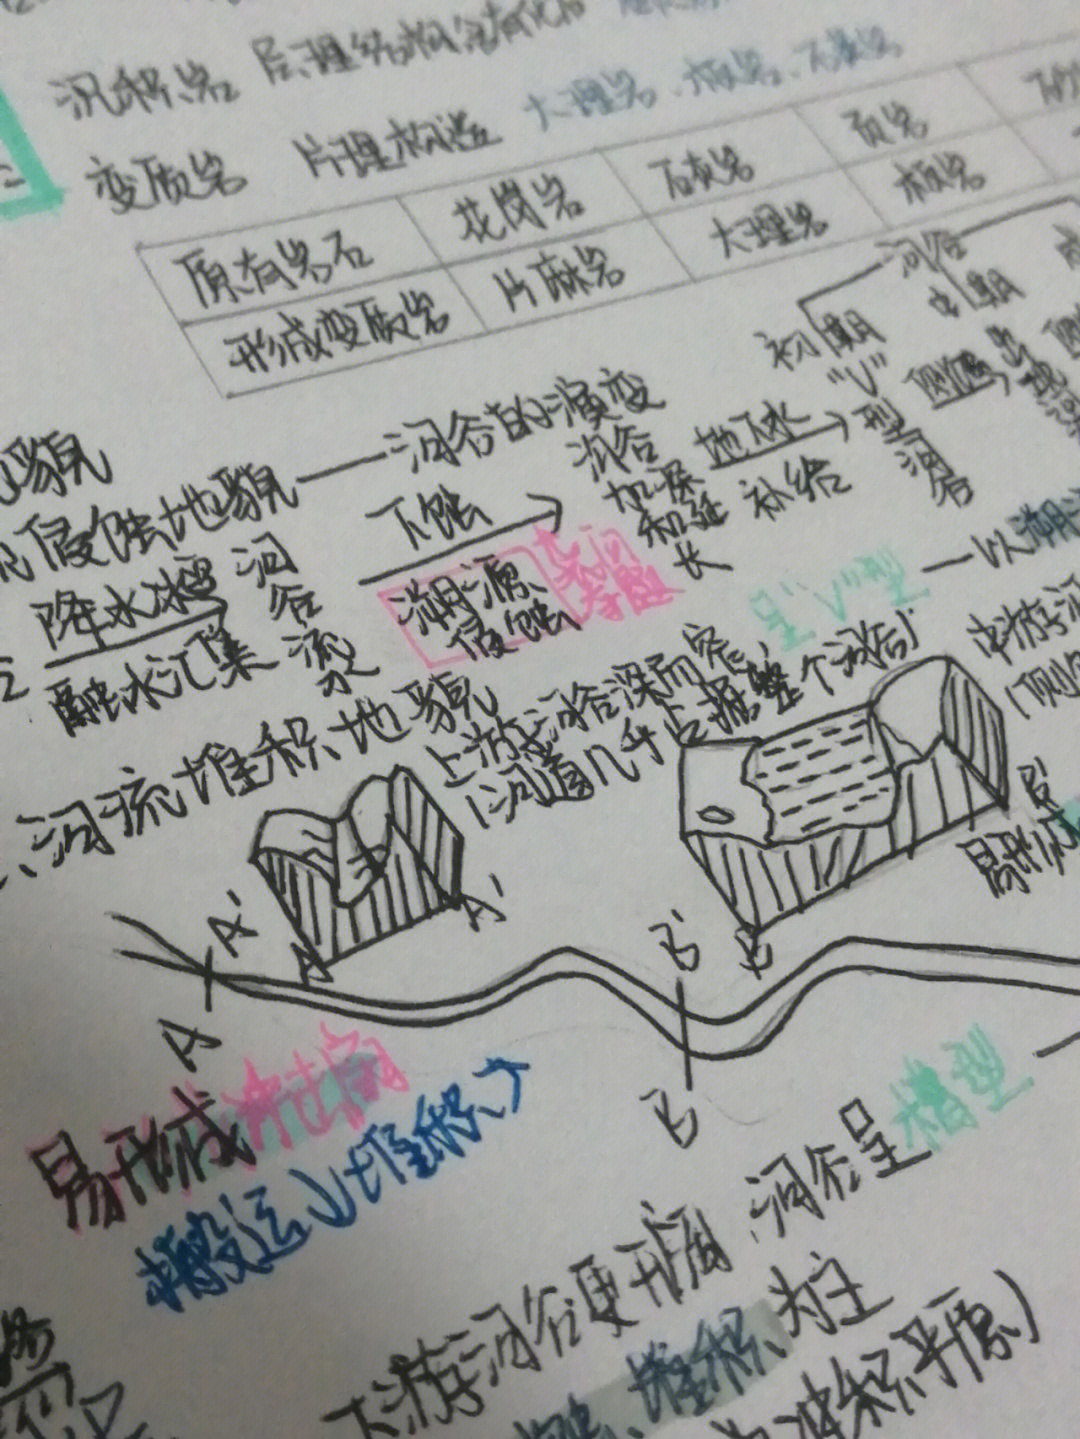 沉积岩 层理结构 含有化石
变质岩 片理构造 大理岩、板岩、石英岩
原有岩石 花岗岩 石灰岩 页岩
形成变质岩 片麻岩 大理岩 板岩
河谷
初期 中期
"V"型河谷
侵蚀地貌 — 河谷的演变
下蚀
溯源侵蚀
沟谷加深和延长
地下水补给
降水冰雪融水汇集
沟谷流
呈"V"型
一以溯
河流堆积地貌
上游河谷深而窄,
(河道几乎占据整个河谷)
中游河
易形成
A' A A'
A
B' B
B
易形成冲击扇
搬运↓堆积↗
下游河谷更开阔、河谷呈槽型
堆积为主
冲积平原)